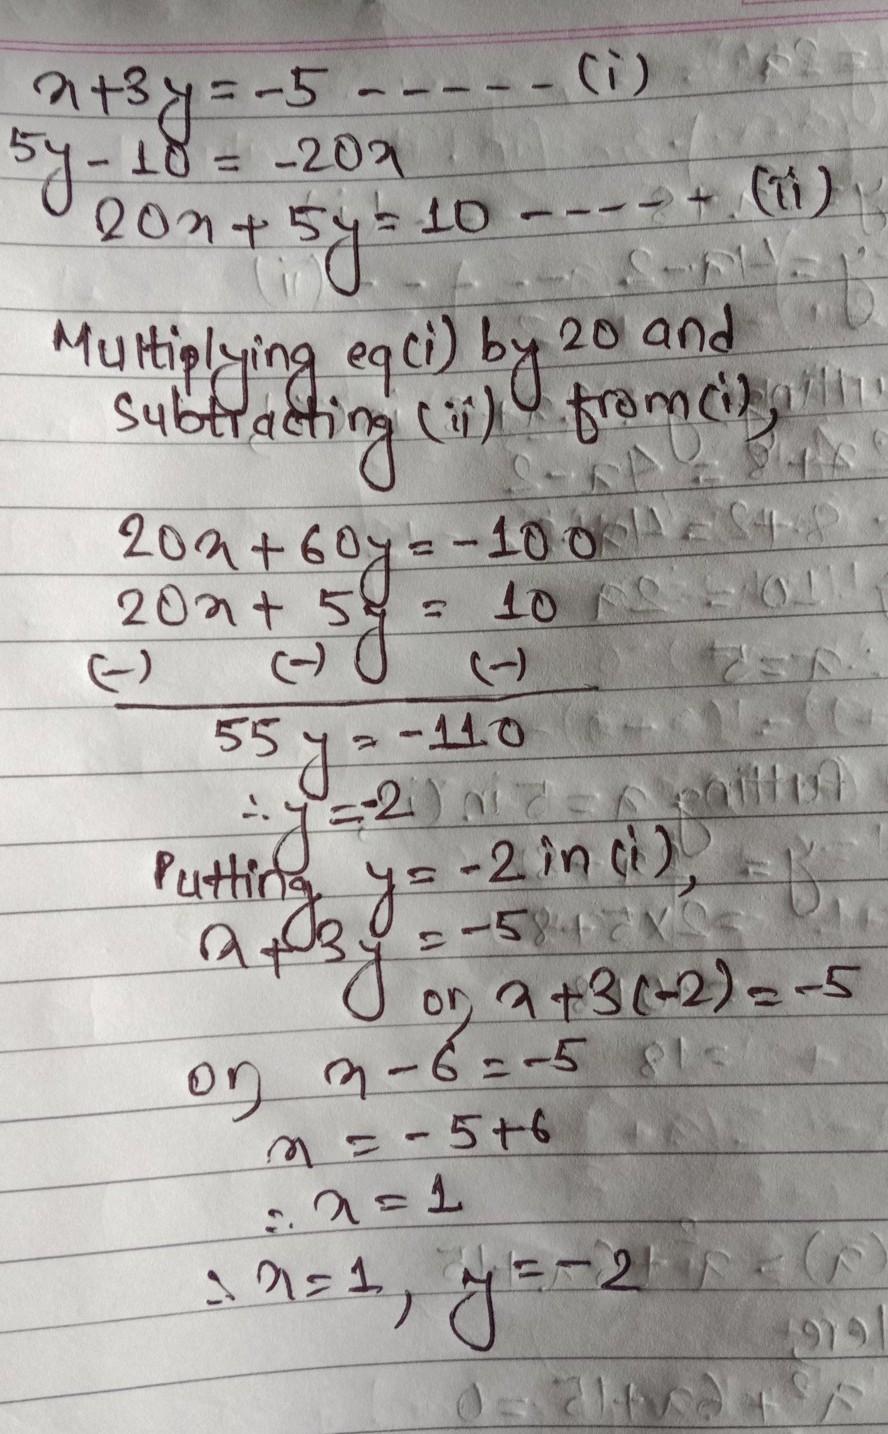 x+3y=-5 ------ (i)
5y-10 = -20x
20x+5y=10 ----- (ii)
Multiplying eq(i) by 20 and
subtracting (ii) from (i),
20x+60y=-100
20x+ 5y = 10
(-) (-) (-)
55y=-110
∴y=-2
Putting y=-2 in (i),
x+3y=-5
or, x+3(-2)=-5
or, x-6=-5
x=-5+6
∴x=1
∴x=1, y=-2